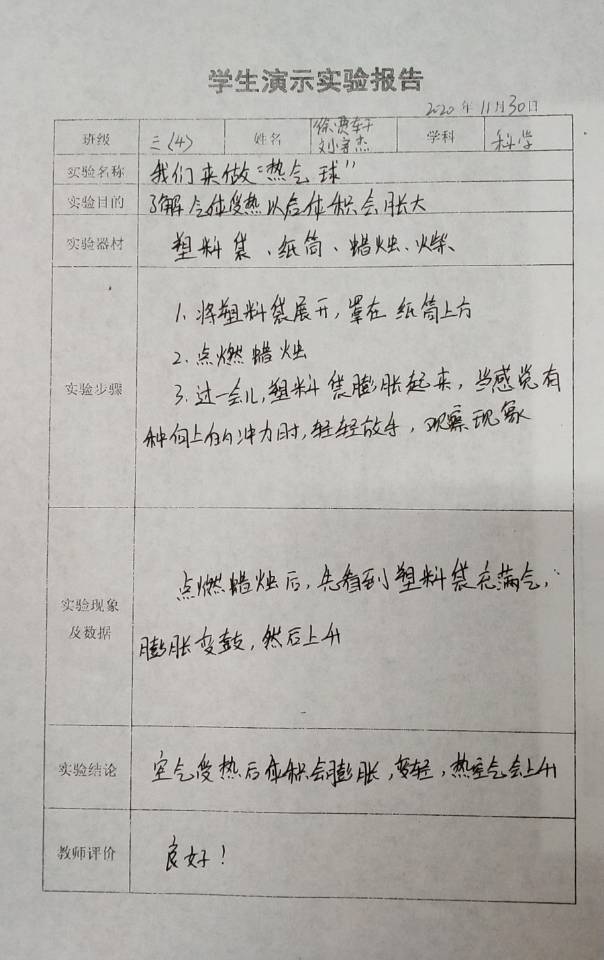 学生演示实验报告
2020年11月30日
班级 三(4) 姓名 徐 轩 学科 科学
刘 杰
实验名称 我们来做“热气球”
实验目的 了解气体受热以后体积会胀大
实验器材 塑料袋、纸筒、蜡烛、火柴、
实验步骤
1. 将塑料袋展开，罩在纸筒上方
2. 点燃蜡烛
3. 过一会儿，塑料袋膨胀起来，当感觉有
种向上的冲力时，轻轻放手，观察现象
实验现象
及数据
点燃蜡烛后，先看到塑料袋充满气，
膨胀变鼓，然后上升
实验结论 空气受热后体积会膨胀，变轻，热空气会上升
教师评价 良好！